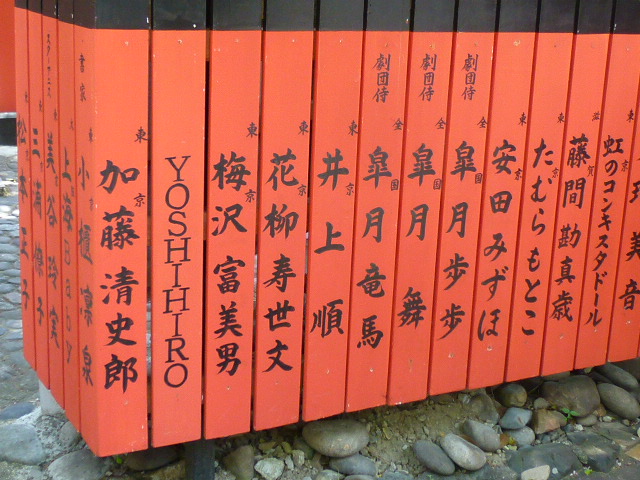 松本正子
三浦
スターサニス
美谷玲実
上海Baby
書家 東京 小櫃凛泉
東京 加藤清史郎
YOSHIHIRO
東京 梅沢富美男
東京 花柳寿世文
東京 井上順
劇団侍 全国 皐月竜馬
劇団侍 全国 皐月舞
劇団侍 全国 皐月歩歩
東京 安田みずほ
東京 たむらもとこ
東京 藤間勘真歳
滋賀 虹のコンキスタドール
東 美音